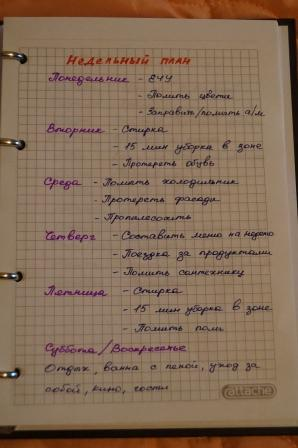 Недельный план
Понедельник - ЕЧУ
- Полить цветы
- Заправить/помыть а/м
Вторник - Стирка
- 15 мин уборка в зоне
- Протереть обувь
Среда - Помыть холодильник
- Протереть фасады
- Пропылесосить
Четверг - Составить меню на неделю
- Поездка за продуктами
- Помыть сантехнику
Пятница - Стирка
- 15 мин уборка в зоне
- Помыть полы
Суббота/Воскресенье
Отдых, ванна с пеной, уход за
собой, кино, гости
attache